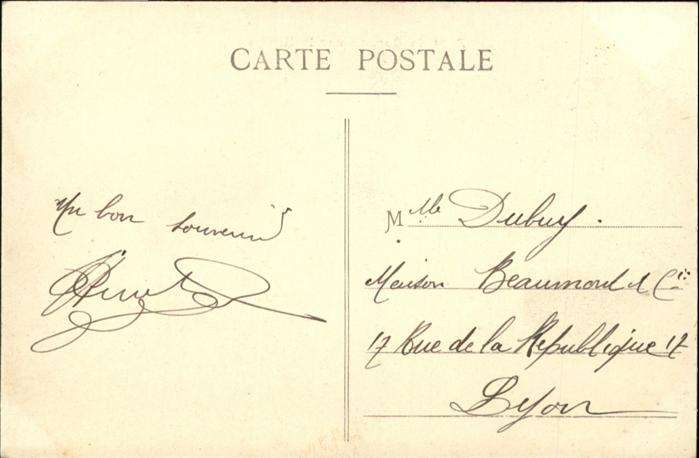 CARTE POSTALE
Un bon souvenir
Mlle Dubuy.
Maison Beaumont & Cie
17 Rue de la République 17
Lyon